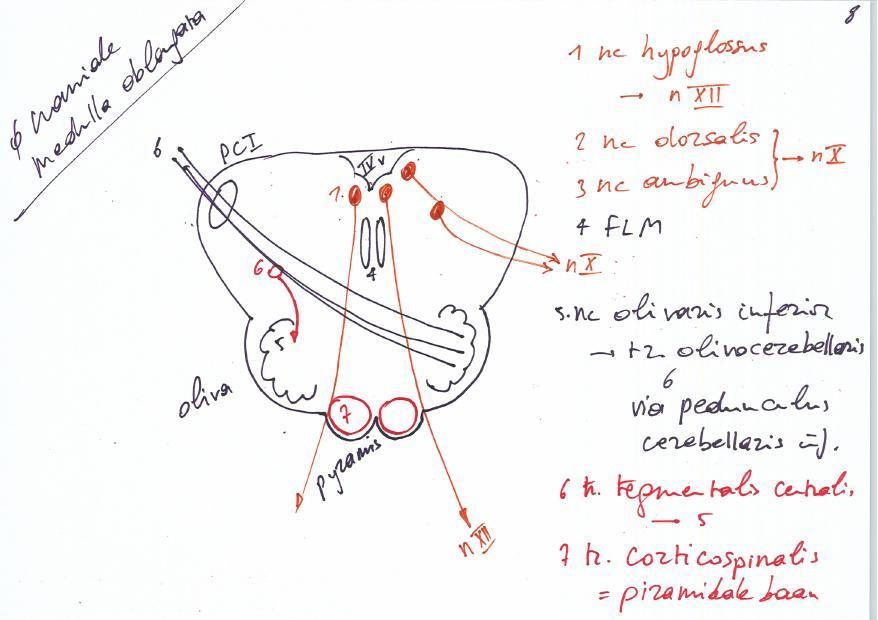 8
φ craniale
medulla oblongata
6
PCI
IV v
1.
4
6
5
oliva
7
pyramis
n XII
n X
1 nc hypoglossus
→ n XII
2 nc dorsalis
3 nc ambiguus } → n X
4 FLM
5. nc olivaris inferior
→ tr olivocerebellaris
6
via pedunculus
cerebellaris inf.
6 tr. tegmentalis centralis
→ 5
7 tr. corticospinalis
= piramidale baan